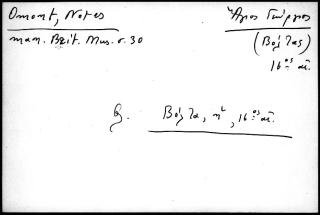 Omont, Notes
man. Brit. Mus. σ. 30
Ἅγιος Γεώργιος
(Βόλτας)
16ος αἰ.
β. Βόλτα, η², 16ος αἰ.